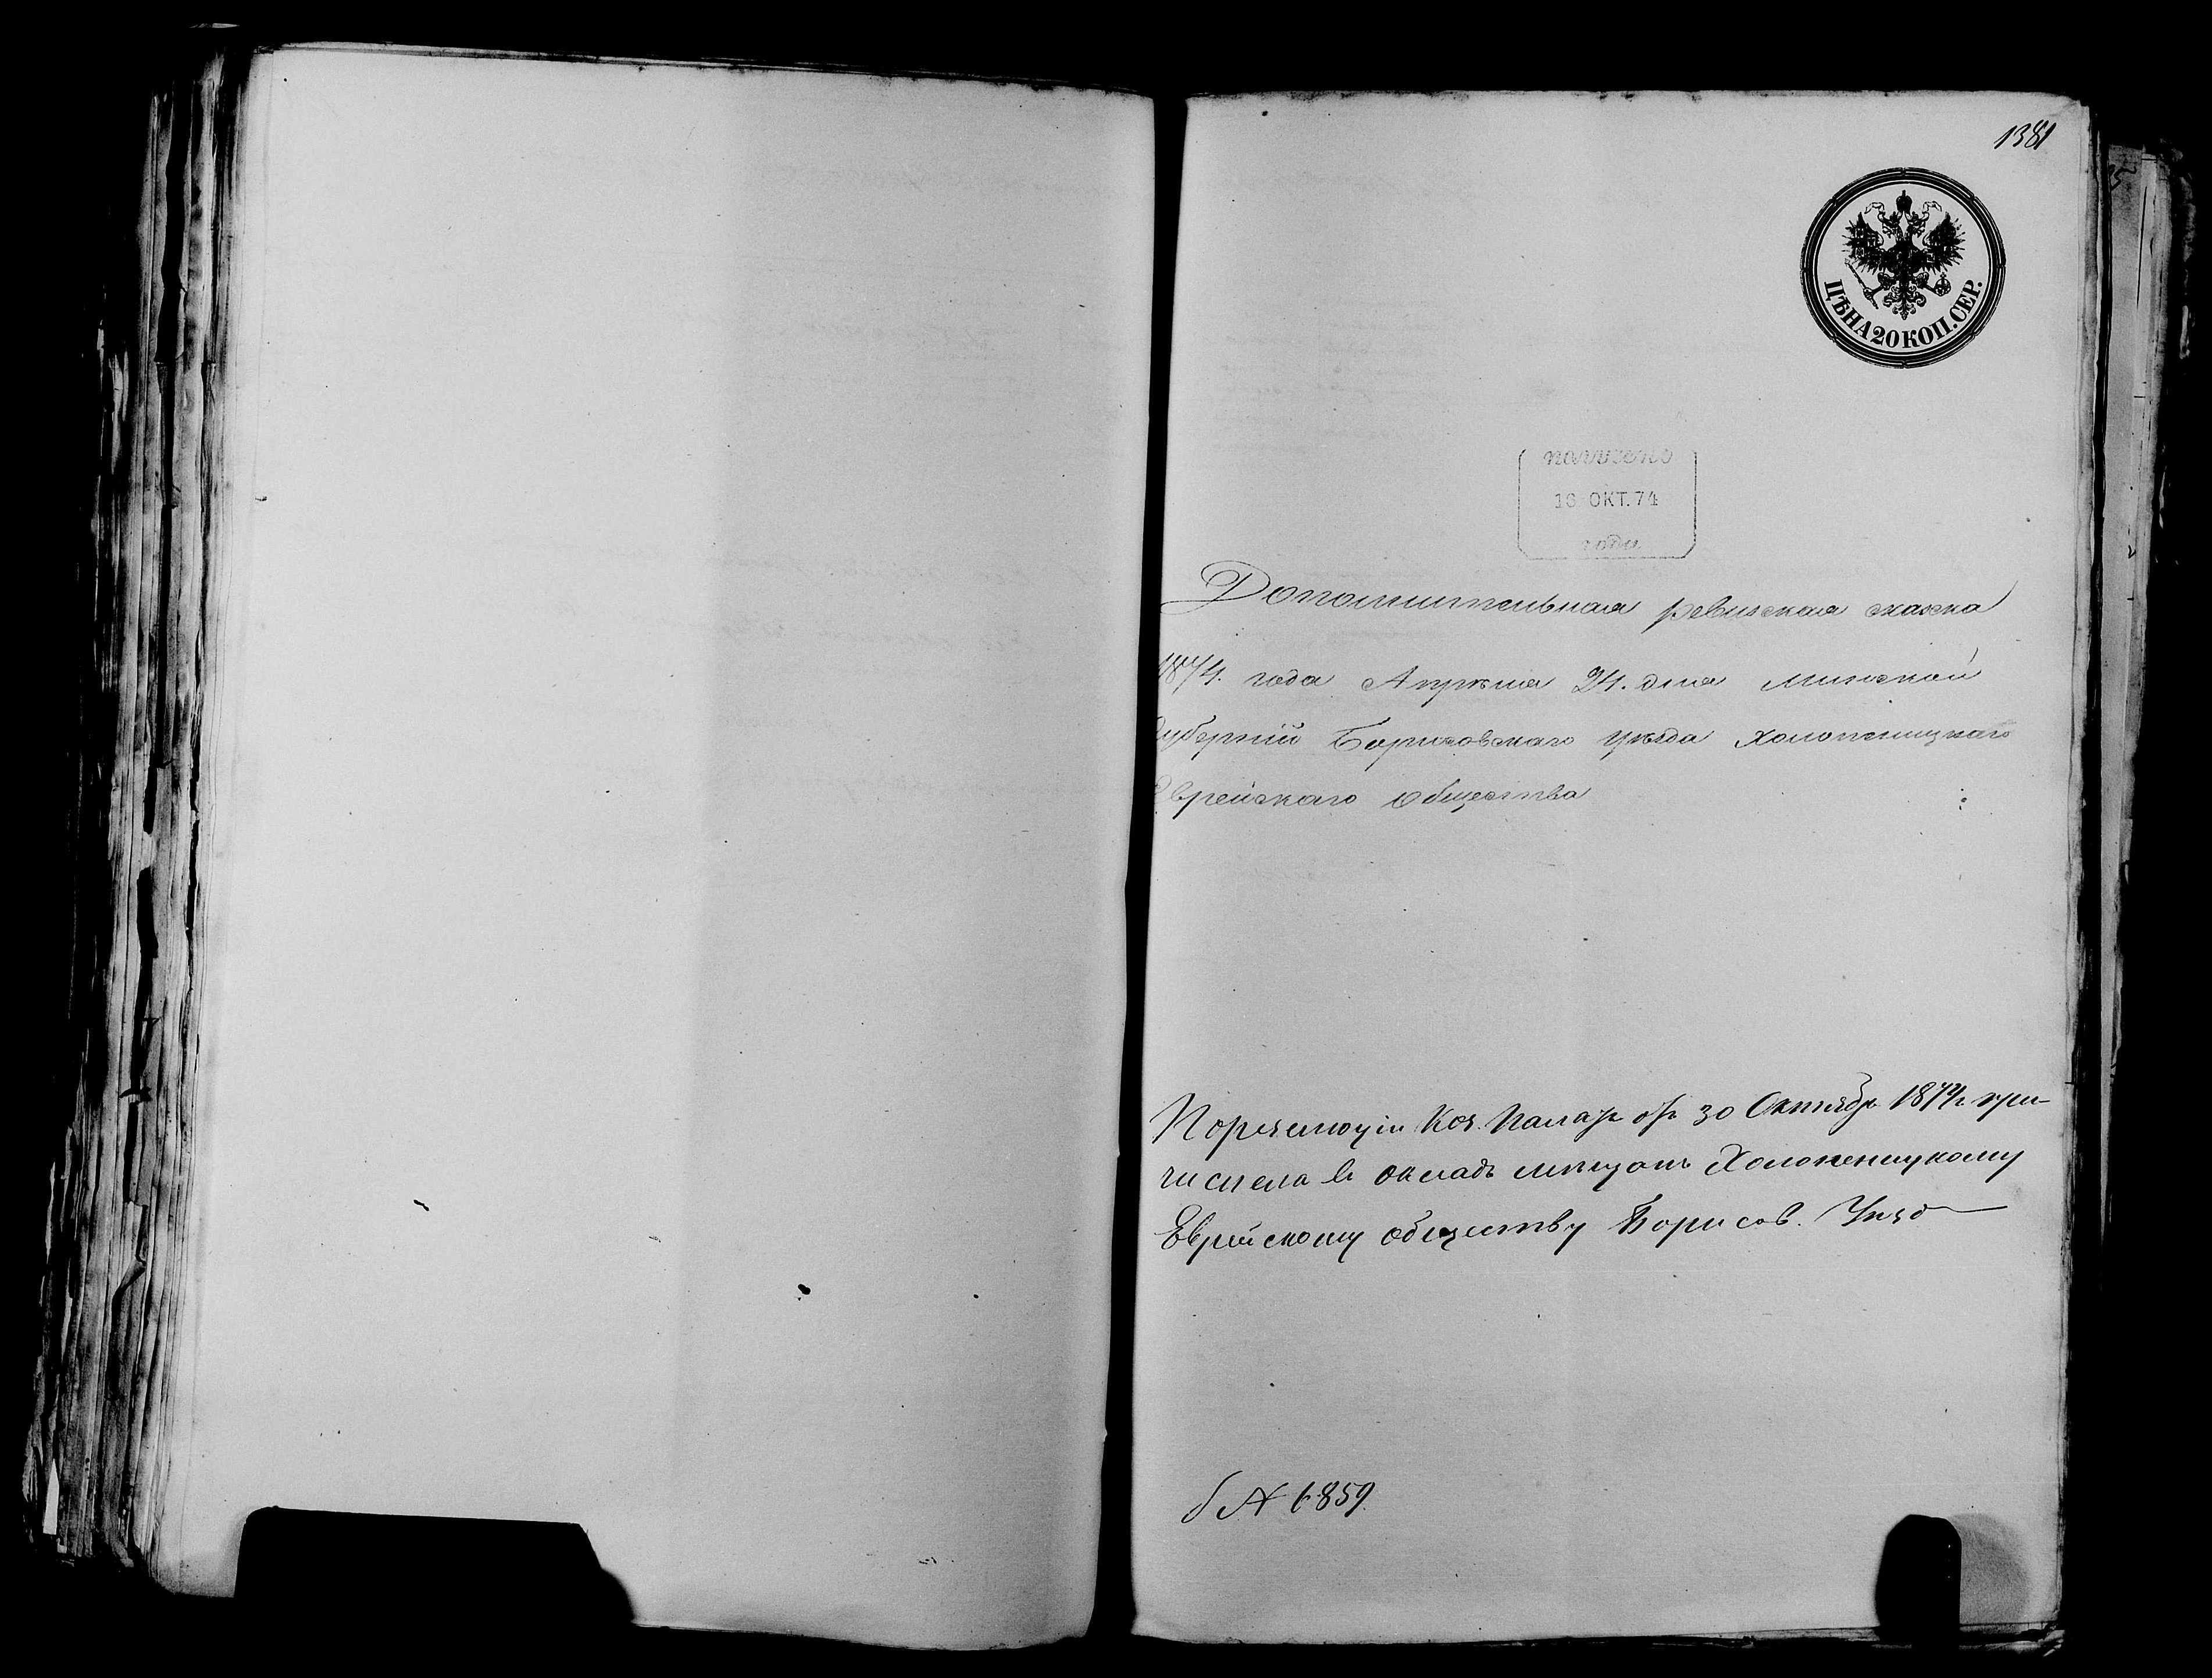 1381
ЦѢНА 20 КОП. СЕР.
получено
ОКТ. 74
года
Дополнительная ревизская сказка
1874. года Апрѣля 24. дня Минской
Губерніи Борисовскаго уѣзда Холопеницкаго
Еврейскаго общества
Каз. Палаты отъ 30 Октябр. 1874 г. при-
числена въ окладъ мѣщанъ Холопеницкому
Еврейскому обществу Борисов. Уѣзд
№ 6859.